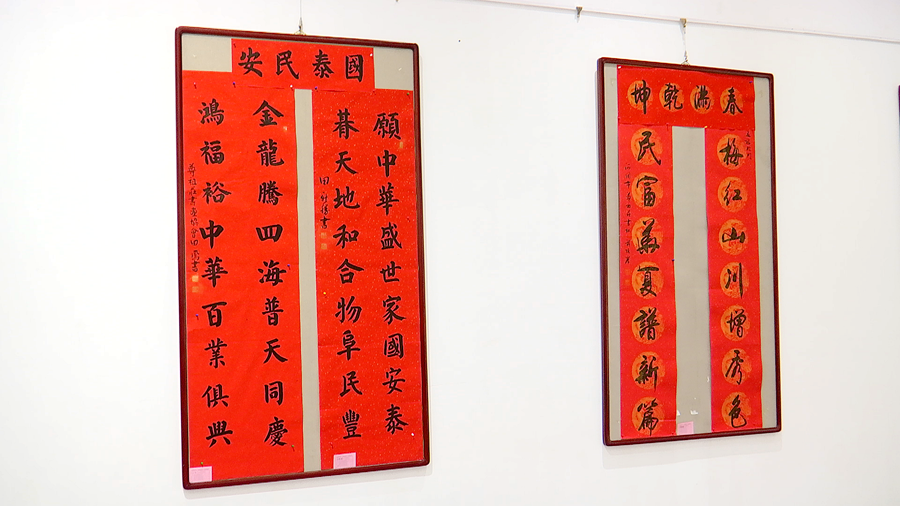 國泰民安
願中華盛世家國安泰
暮天地和合物阜民豐
金龍騰四海普天同慶
鴻福裕中華百業俱興
春滿乾坤
梅紅山川增秀色
民富華夏譜新篇